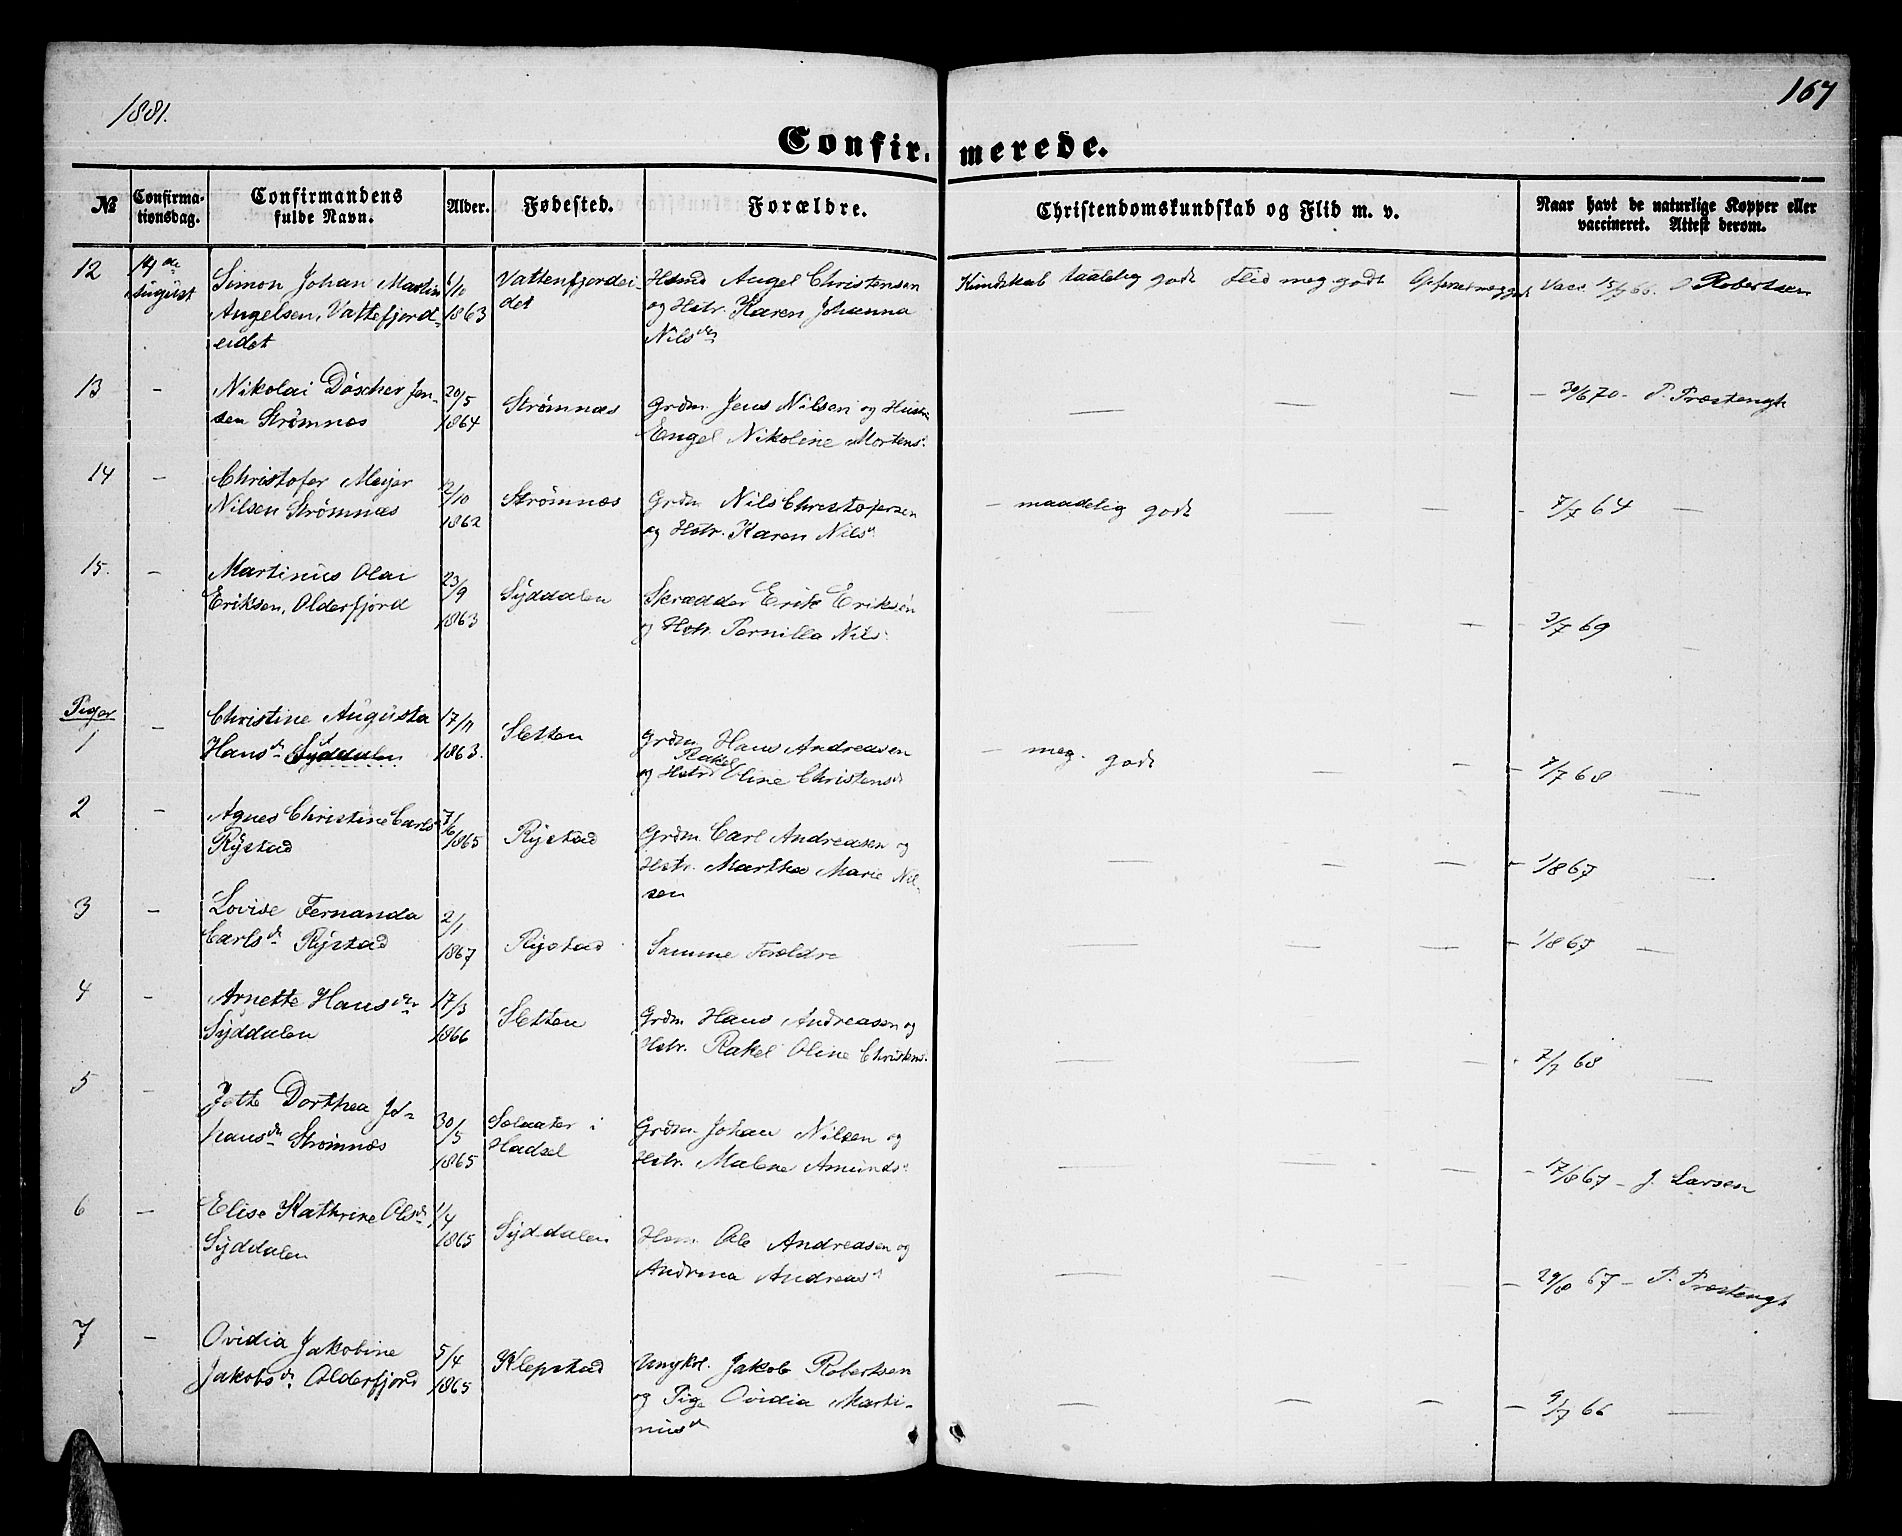 1881.
167
Confir merede.
№
Confirma-
tionsdag.
Confirmandens
fulde Navn.
Alder.
Fødested.
Forældre.
Christendomskundskab og Flid m. v.
Naar havt de naturlige Kopper eller
vaccineret. Attest derom.
12 14de August Simon Johan Martin Angelsen, Vattefjord-eidet 6/10 1863 Vattenfjordei det Hsmd Angel Christensen og Hstr. Karen Johanna Nilsdr Kundskab taalelig godt Flid meg. godt Vacc. 15/7 66. Robertsen
13 — Nikolai Döscher Jen-sen Strømnæs 20/5 1864 Strømnæs Grdm. Jens Nilsen og Hustru Engel Nikoline Mortens. — — — — 30/6 70 - P. Præstengb
14 — Christofer Meyer Nilsen Strømnæs 1862 Strømnæs Grdm Nils Christofersen og Hstr. Karen Nilsd - maadelig godt — — - 7/7 64 —
15. — Martinus Olai Eriksen, Olderfjord 23/9 1863 Syddalen Skrædder Erik Eriksen og Hstr. Pernilla Nils. — — — - 3/7 69
Piger
1 — Christine Augusta Hansdr Syddalen 17/11 1863. Sletten Grdm Hans Andreasen og Hstr Rakel Oline Christensd - meg. godt — — - 7/7 68 —
2 — Agnes Christine Carlsd Rystad 7/6 1865 Rystad Grdm. Carl Andreasen og Hstr. Martha Marie Nil-sen — — — - 1/8 67 —
3 — Lovise Fernanda Carlsdr Rystad 2/1 1867 Rystad Samme Forældre — — — - 1/8 67 —
4 — Arnette Hansdtr Syddalen 17/3 1866 Sletten Grdm Hans Andreasen og Hstr. Rakel Oline Christens. — — — - 7/7 68 —
5 — Jette Dorthea Jo-hansdr Strømnæs 30/5 1865 i Hadsel Grdm. Johan Nilsen og Hstr. Malene Amundsd — — — - 17/8 67 - J. Larsen
6 — Elise Kathrine Olsdr Syddalen 1/4 1865 Syddalen Hsm. Ole Andreasen og Andrina Andreasd — — — - 29/8 67 - P. Præstengb
7 — Ovidia Jakobine Jakobsdr. Olderfjord 5/4 1865 Klepstad Ungkrl. Jakob Robertsen og Pige Ovidia Marti-niusd — — — - 9/7 66 —